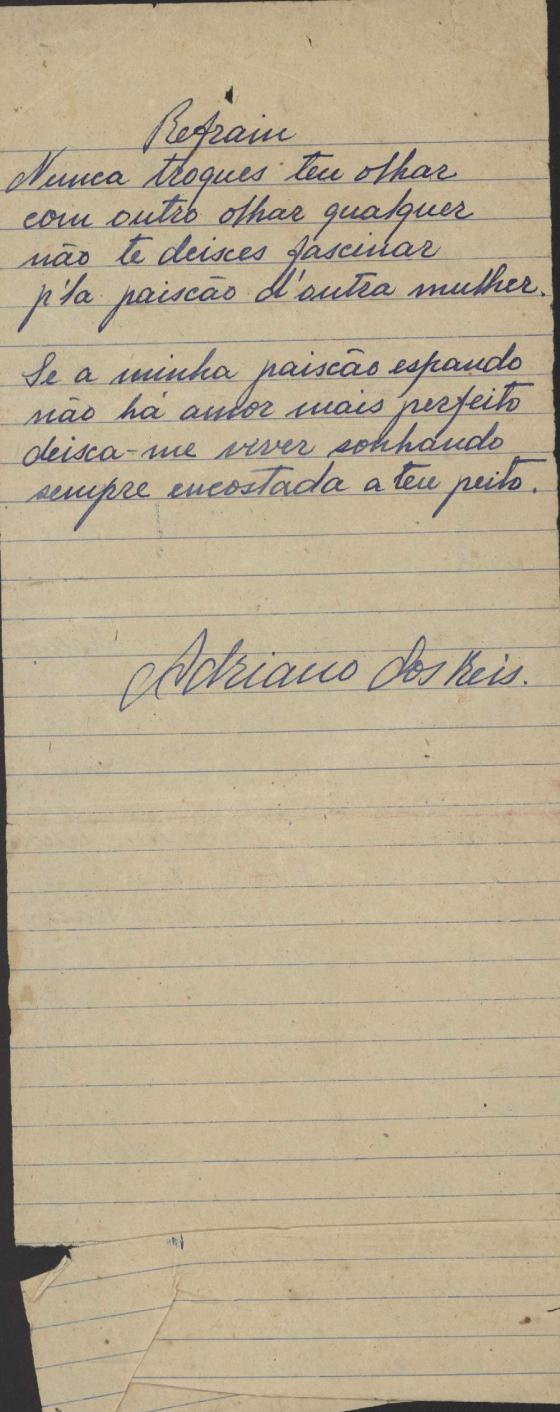 Refrain
Nunca troques teu olhar
com outro olhar qualquer
não te deisces fascinar
p'la paiscão d'outra mulher.
Se a minha paiscão espando
não há amor mais perfeito
deisca-me viver sonhando
sempre encostada a teu peito.
Adriano dos Reis.